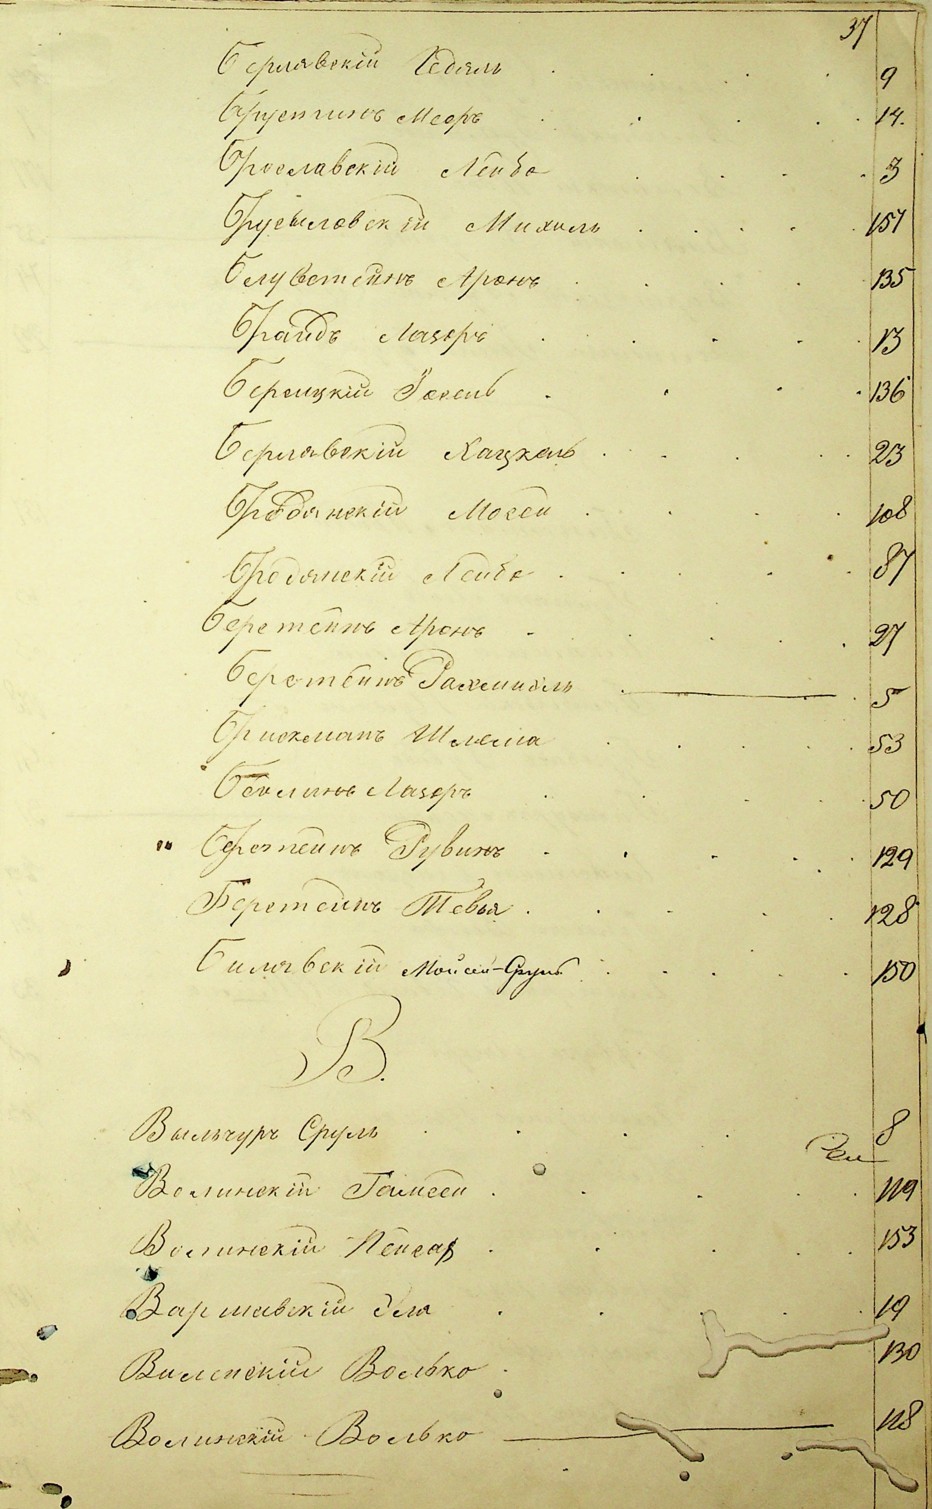 37
Берлявскій 9
Брустинъ Мееръ 14.
Брославскій Лейба 3
Брусиловскій Михель 157
Блувштейнъ Аронъ 135
Брандъ Лазеръ 13
Береицкій 136
Берлявскій Хацкель 23
Бродянскій Мосей 108
Бродянскій Лейба 87
Берштейнъ Аронъ 27
Берштейнъ Рахмиель 5
Брискманъ Шлема 53
Лазеръ 50
Рувинъ 129
Берштейнъ Тевья 128
Билявскій Мойсей-Сруль 150
В.
Вильчуръ Сруль 8
Волинскій 119
Волинскій 153
Варшавскій Эля 19
Виленскій Волько 130
Волинскій Волько 118